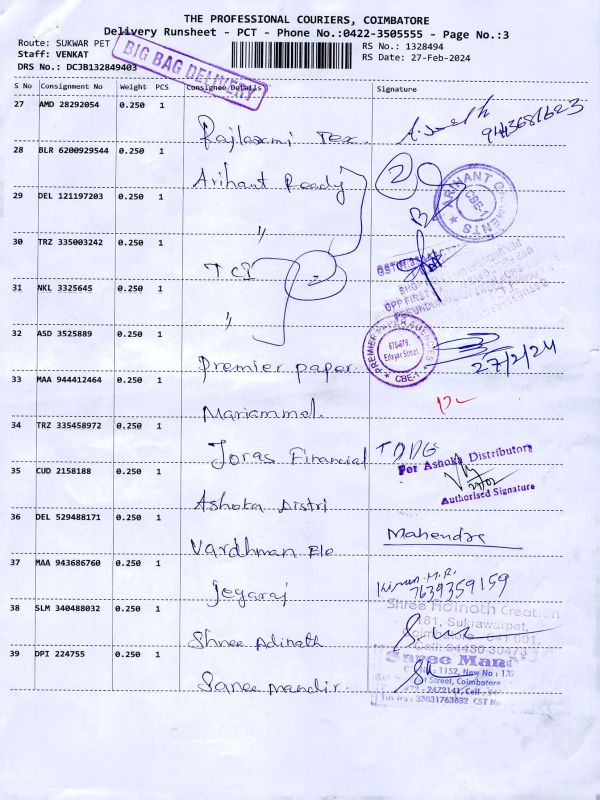 THE PROFESSIONAL COURIERS, COIMBATORE
Delivery Runsheet - PCT - Phone No.:0422-3505555 - Page No.:3
Route: SUKWAR PET
RS No.: 1328494
Staff: VENKAT
RS Date: 27-Feb-2024
DRS No.: DCJB132849403
BIG BAG DELIVERY
S No Consignment No Weight PCS Consignee Details Signature
27 AMD 28292054 0.250 1
Rajlaxmi Tex.
28 BLR 6200929544 0.250 1
Arihant Ready 2
ARIHANT GARMENTS
CBE-1
29 DEL 121197203 0.250 1
"
30 TRZ 335003242 0.250 1
TCI 2
31 NKL 3325645 0.250 1
"
32 ASD 3525889 0.250 1
Premier paper.
PREMIER PAPER AGENCIES
Edayar Street,
CBE-1
27/2/24
33 MAA 944412464 0.250 1
Mariammal.
34 TRZ 335458972 0.250 1
Joras Financial
35 CUD 2158188 0.250 1
Ashoka Distri
For Ashoka Distributors
Authorised Signature
36 DEL 529488171 0.250 1
Vardhman Ele
Mahendra
37 MAA 943686760 0.250 1
Jeyaraj
Kiran.M.R.
7639359159
38 SLM 340488032 0.250 1
Shree Adinath
Shree Adinath Creation
181, Sukrawarpet,
39 DPI 224755 0.250 1
Saree mandir.
Saree Mandir